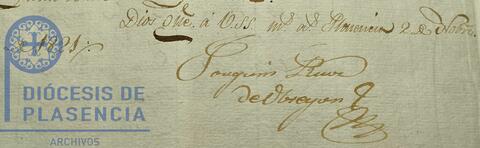 Dios Gue. á V.SS. ms. as. Plasencia 2 de Nobre.
de 1821.
Joaquin
de Obregon
DIÓCESIS DE
PLASENCIA
ARCHIVOS